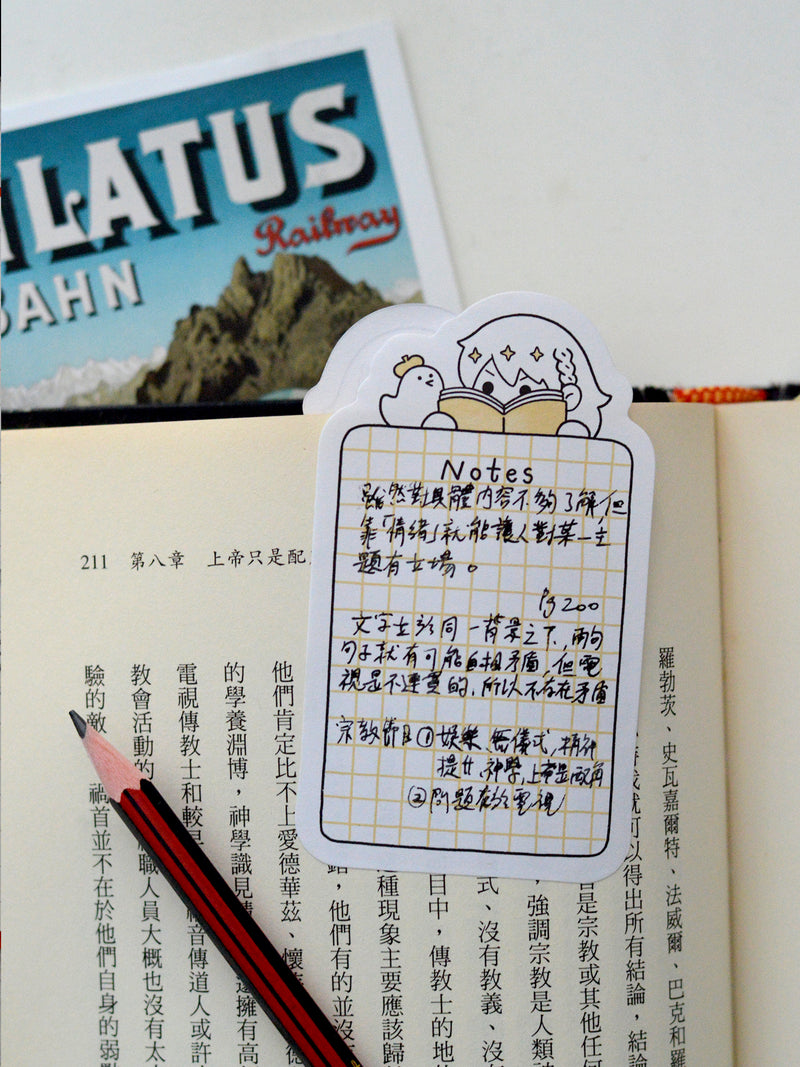 LATUS
Railway
BAHN
Notes
雖然對具體內容不夠了解但
靠「情緒」就能讓人對某一主
題有立場。
Pg 200
文字立於同一背景之下,兩句
句子就有可能自相矛盾,但電
視是不連貫的,所以不存在矛盾
宗教節目①娛樂、無儀式,精神
提升、神學,上帝是配角
②問題在於電視
211 第八章 上帝只是配
羅勃茨、史瓦嘉爾特、法威爾、巴克和羅
我就可以得出所有結論,結論
是宗教或其他任何
,強調宗教是人類
式、沒有教義、沒
目中,傳教士的地
種現象主要應該歸
,他們有的並沒
他們肯定比不上愛德華茲、懷
的學養淵博,神學識見
擁有高
電視傳教士和較早
音傳道人或許
教會活動的
職人員大概也沒有太
驗的敵
禍首並不在於他們自身的弱